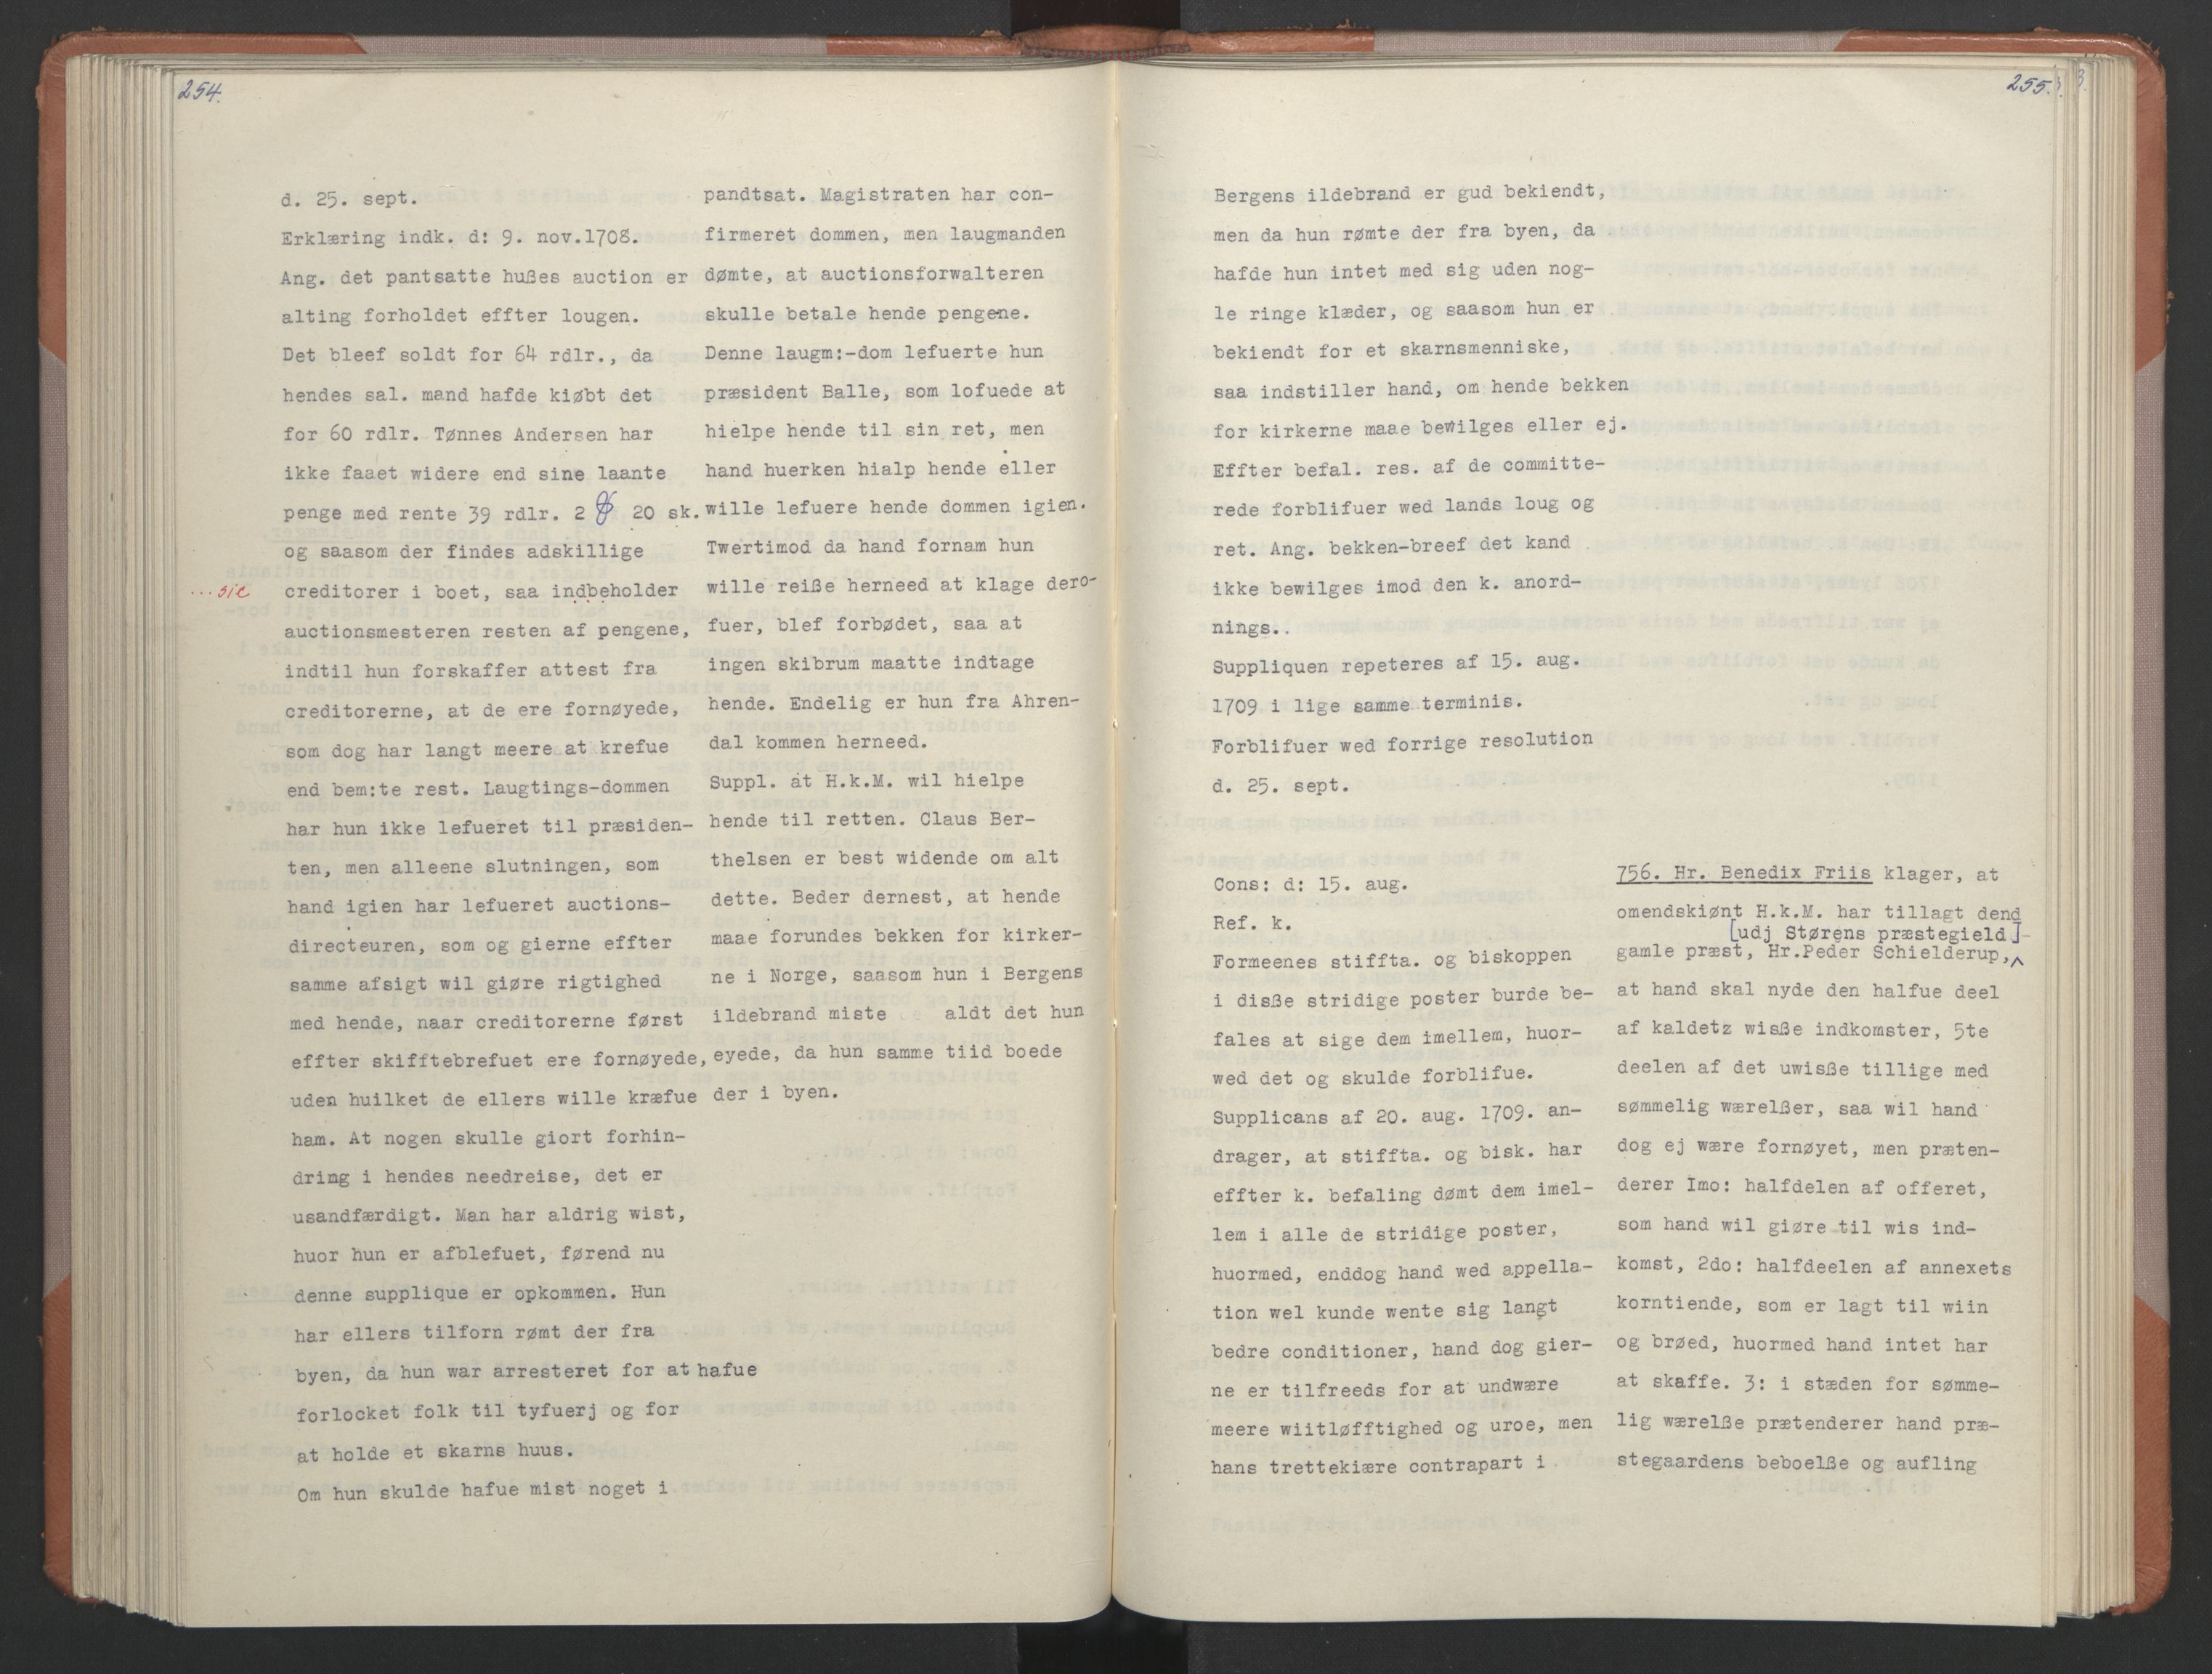 254.
d. 25. sept.
Erklæring indk. d: 9. nov.1708.
Ang. det pantsatte hußes auction er
alting forholdet effter lougen.
Det bleef soldt for 64 rdlr., da
hendes sal. mand hafde kiøbt det
for 60 rdlr. Tønnes Andersen har
ikke faaet widere end sine laante
penge med rente 39 rdlr. 2 20 sk.
og saasom der findes adskillige
...sic
creditorer i boet, saa indbeholder
auctionsmesteren resten af pengene,
indtil hun forskaffer attest fra
creditorerne, at de ere fornøyede,
som dog har langt meere at krefue
end bem:te rest. Laugtings-dommen
har hun ikke lefueret til præsiden-
ten, men alleene slutningen, som
hand igien har lefueret auctions-
directeuren, som og gierne effter
samme afsigt wil giøre rigtighed
med hende, naar creditorerne først
effter skifftebrefuet ere fornøyede,
uden huilket de ellers wille kræfue
ham. At nogen skulle giort forhin-
dring i hendes needreise, det er
usandfærdigt. Man har aldrig wist,
huor hun er afblefuet, førend nu
denne supplique er opkommen. Hun
har ellers tilforn rømt der fra
byen, da hun war arresteret for at hafue
forlocket folk til tyfuerj og for
at holde et skarns huus.
Om hun skulde hafue mist noget i
pandtsat. Magistraten har con-
firmeret dommen, men laugmanden
dømte, at auctionsforwalteren
skulle betale hende pengene.
Denne laugm:-dom lefuerte hun
præsident Balle, som lofuede at
hielpe hende til sin ret, men
hand huerken hialp hende eller
wille lefuere hende dommen igien.
Twertimod da hand fornam hun
wille reiße herneed at klage dero-
fuer, blef forbødet, saa at
ingen skibrum maatte indtage
hende. Endelig er hun fra Ahren-
dal kommen herneed.
Suppl. at H.k.M. wil hielpe
hende til retten. Claus Ber-
thelsen er best widende om alt
dette. Beder dernest, at hende
maae forundes bekken for kirker-
ne i Norge, saasom hun i Bergens
ildebrand miste aldt det hun
eyede, da hun samme tiid boede
der i byen.
255.
Bergens ildebrand er gud bekiendt,
men da hun rømte der fra byen, da
hafde hun intet med sig uden nog-
le ringe klæder, og saasom hun er
bekiendt for et skarnsmenniske,
saa indstiller hand, om hende bekken
for kirkerne maae bewilges eller ej.
Effter befal. res. af de committe-
rede forblifuer wed lands loug og
ret. Ang. bekken-breef det kand
ikke bewilges imod den k. anord-
nings.
Suppliquen repeteres af 15. aug.
1709 i lige samme terminis.
Forblifuer wed forrige resolution
d. 25. sept.
Cons: d: 15. aug.
Ref. k.
Formeenes stiffta. og biskoppen
i disße stridige poster burde be-
fales at sige dem imellem, huor-
wed det og skulde forblifue.
Supplicans af 20. aug. 1709. an-
drager, at stiffta. og bisk. har
effter k. befaling dømt dem imel-
lem i alle de stridige poster,
huormed, enddog hand wed appella-
tion wel kunde wente sig langt
bedre conditioner, hand dog gier-
ne er tilfreeds for at undwære
meere wiitløfftighed og uroe, men
hans trettekiære contrapart i
756. Hr. Benedix Friis klager, at
omendskiønt H.k.M. har tillagt dend
[udj Størens præstegield]
gamle præst, Hr.Peder Schielderup,
at hand skal nyde den halfue deel
af kaldetz wisße indkomster, 5te
deelen af det uwisße tillige med
sømmelig wærelßer, saa wil hand
dog ej wære fornøyet, men præten-
derer Imo: halfdelen af offeret,
som hand wil giøre til wis ind-
komst, 2do: halfdeelen af annexets
korntiende, som er lagt til wiin
og brøed, huormed hand intet har
at skaffe. 3: i stæden for sømme-
lig wærelße prætenderer hand præ-
stegaardens beboelße og aufling